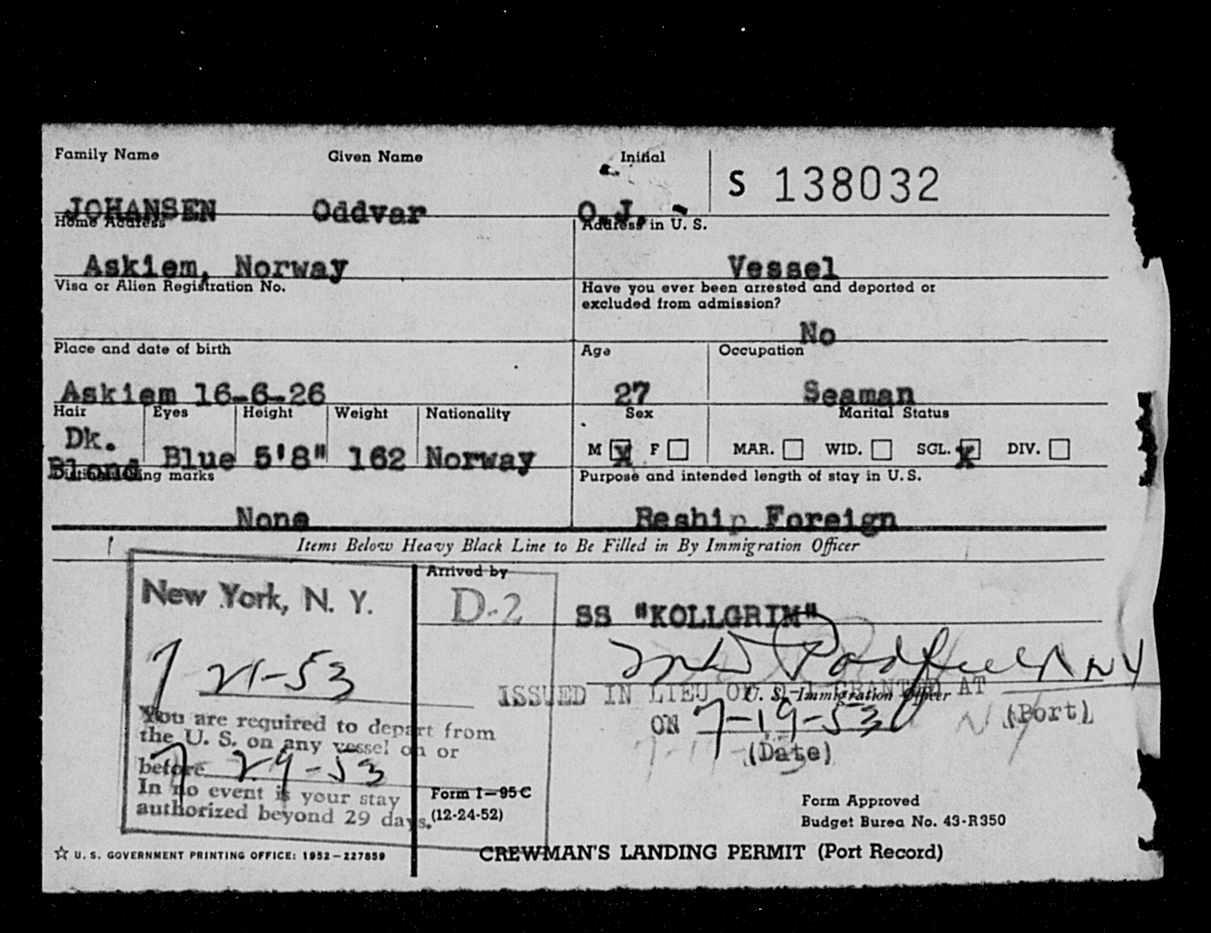 Family Name Given Name Initial
S 138032
JOHANSEN Oddvar O.J. -
Home Address Address in U. S.
Askiem, Norway Vessel
Visa or Alien Registration No. Have you ever been arrested and deported or
excluded from admission?
No
Place and date of birth Age Occupation
Askiem 16-6-26 27 Seaman
Hair Eyes Height Weight Nationality Sex Marital Status
Dk.
Blond Blue 5'8" 162 Norway M X F MAR. WID. SGL. X DIV.
marks Purpose and intended length of stay in U. S.
None Reship Foreign
Items Below Heavy Black Line to Be Filled in By Immigration Officer
Arrived by
New York, N. Y. D-2 SS "KOLLGRIM"
7 21-53
NY
ISSUED IN LIEU OF GRANTED AT
U. S. Immigration Officer
You are required to depart from ON 7-19-53 NY (Port)
the U. S. on any vessel on or (Date)
before 7 29-53
In no event is your stay Form I-95C Form Approved
authorized beyond 29 days. (12-24-52) Budget Burea No. 43-R350
☆ U. S. GOVERNMENT PRINTING OFFICE: 1952-227859 CREWMAN'S LANDING PERMIT (Port Record)